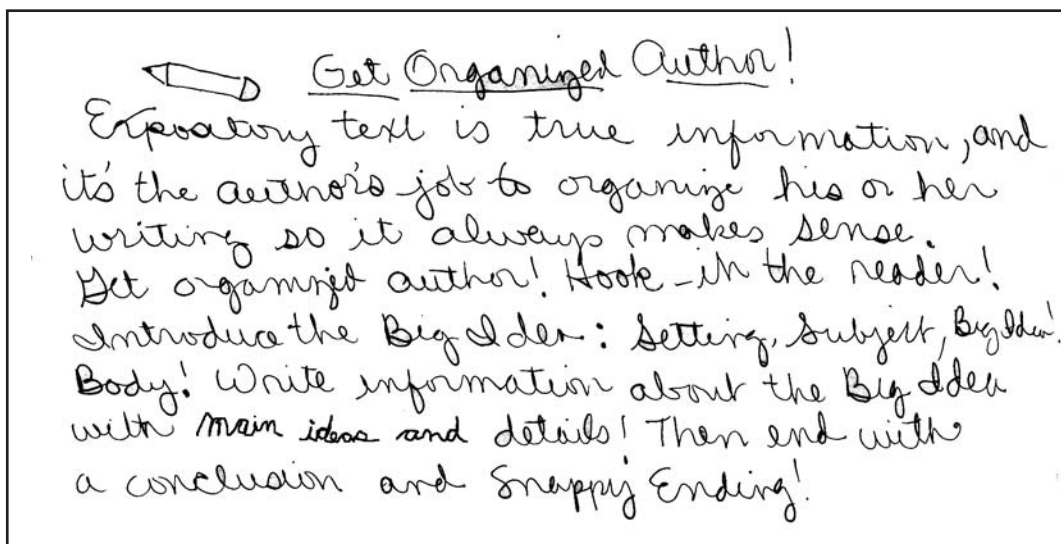 Get Organized Author!
Expository text is true information, and
it's the author's job to organize his or her
writing so it always makes sense.
Get organized author! Hook-in the reader!
Introduce the Big Idea: Setting, Subject, Big Idea!
Body! Write information about the Big Idea
with main ideas and details! Then end with
a conclusion and Snappy Ending!